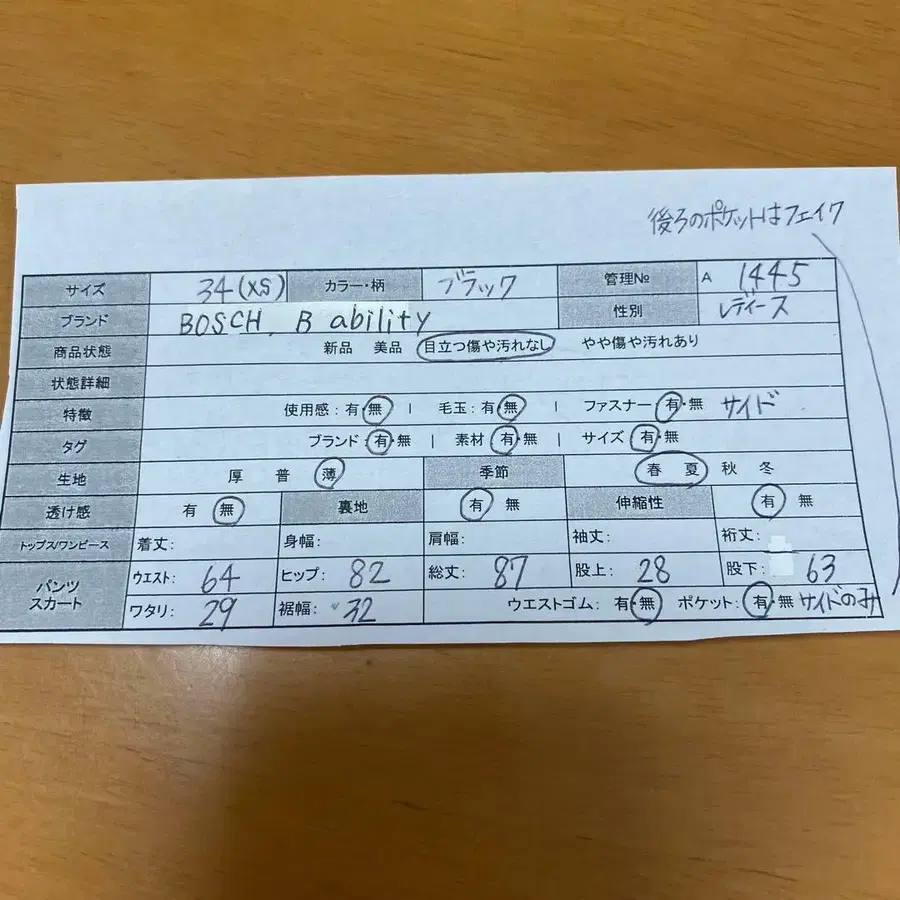 後ろのポケットはフェイク
サイズ 34(XS) カラー・柄 ブラック 管理№ A 1445
ブランド BOSCH. B ability 性別 レディース
商品状態 新品 美品 目立つ傷や汚れなし やや傷や汚れあり
状態詳細
特徴 使用感:有・無 | 毛玉:有・無 | ファスナー:有・無 サイド
タグ ブランド:有・無 | 素材:有・無 | サイズ:有・無
生地 厚 普 薄 季節 春 夏 秋 冬
透け感 有 無 裏地 有 無 伸縮性 有 無
トップス/ワンピース 着丈: 身幅: 肩幅: 袖丈: 裄丈:
パンツ スカート ウエスト: 64 ヒップ: 82 総丈: 87 股上: 28 股下: 63
ワタリ: 29 裾幅: 32 ウエストゴム: 有・無 ポケット: 有・無 サイドのみ